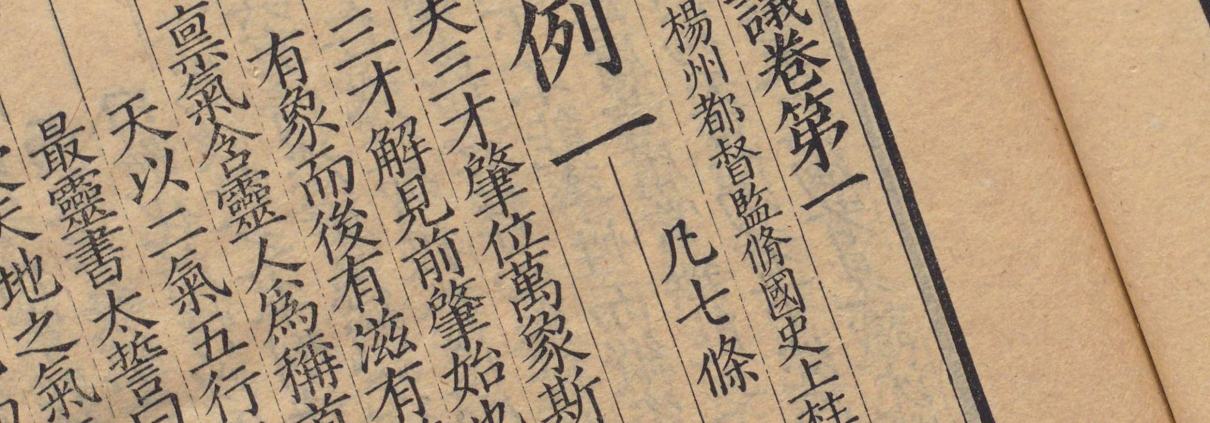 議卷第一
楊州都督監脩國史上柱
例一 凡七條
夫三才肇位萬象斯
三才解見前肇始也
有象而後有滋有
稟氣含靈人爲稱首
天以二氣五行
最靈書太誓曰
天地之氣